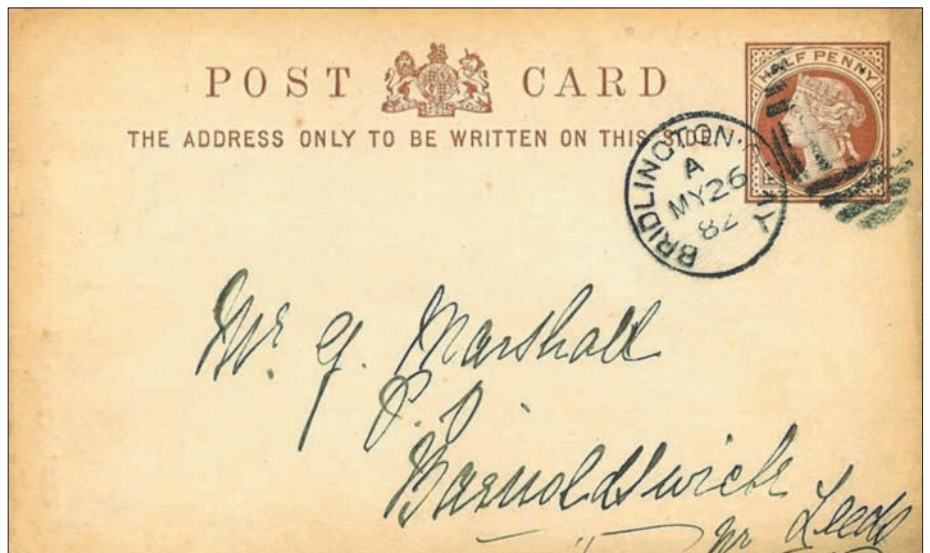 POST CARD
HALF PENNY
THE ADDRESS ONLY TO BE WRITTEN ON THIS SIDE
BRIDLINGTON
A
MY 26
82
Mr. G. Marshall
Barnoldswick
nr Leeds